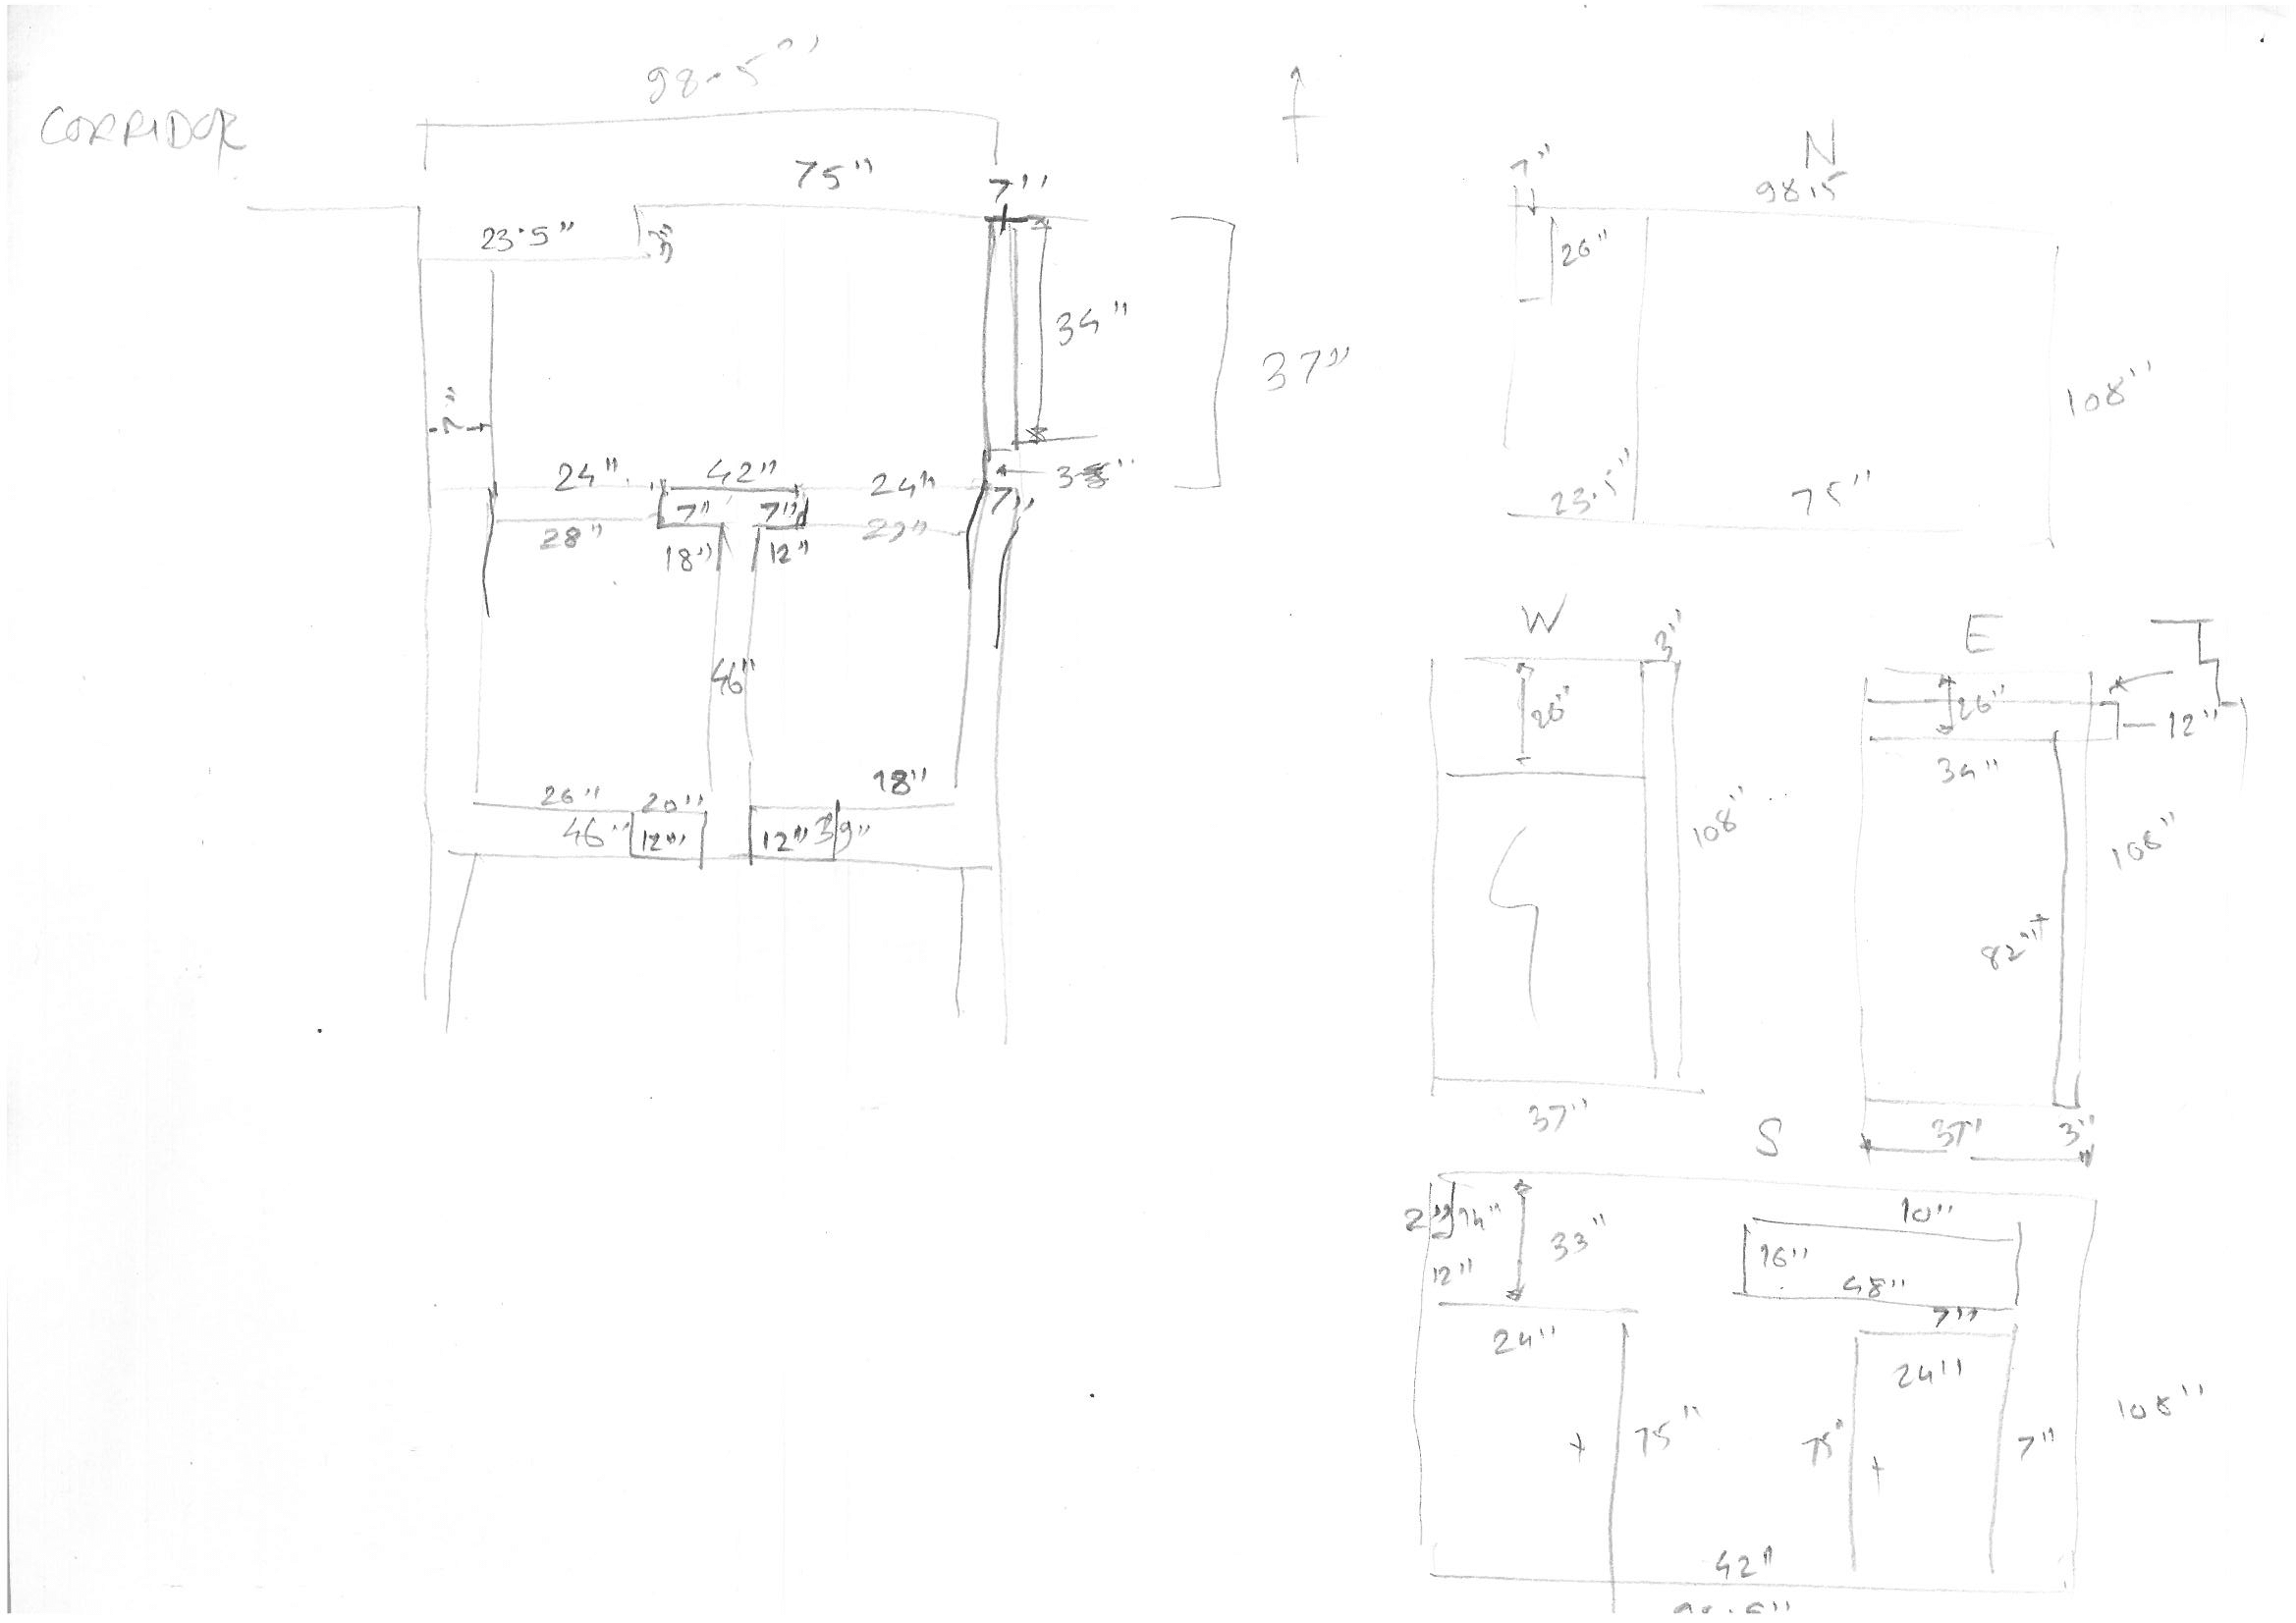 CORRIDOR
98.5"
75"
7"
23.5"
3"
34"
37"
7"
24" 42" 24"
3"
7" 7" 7"
28"
18" 12"
46"
18"
26" 20"
46" 12" 12" 39"
N
7" 98.5
26"
108"
23.5" 75"
W
3"
26"
108"
37"
E
26"
12"
34"
108"
82"
37" 3"
S
2" 14" 33" 10"
12" 16"
48"
7"
24" 24"
75" 75" 7" 108"
42"